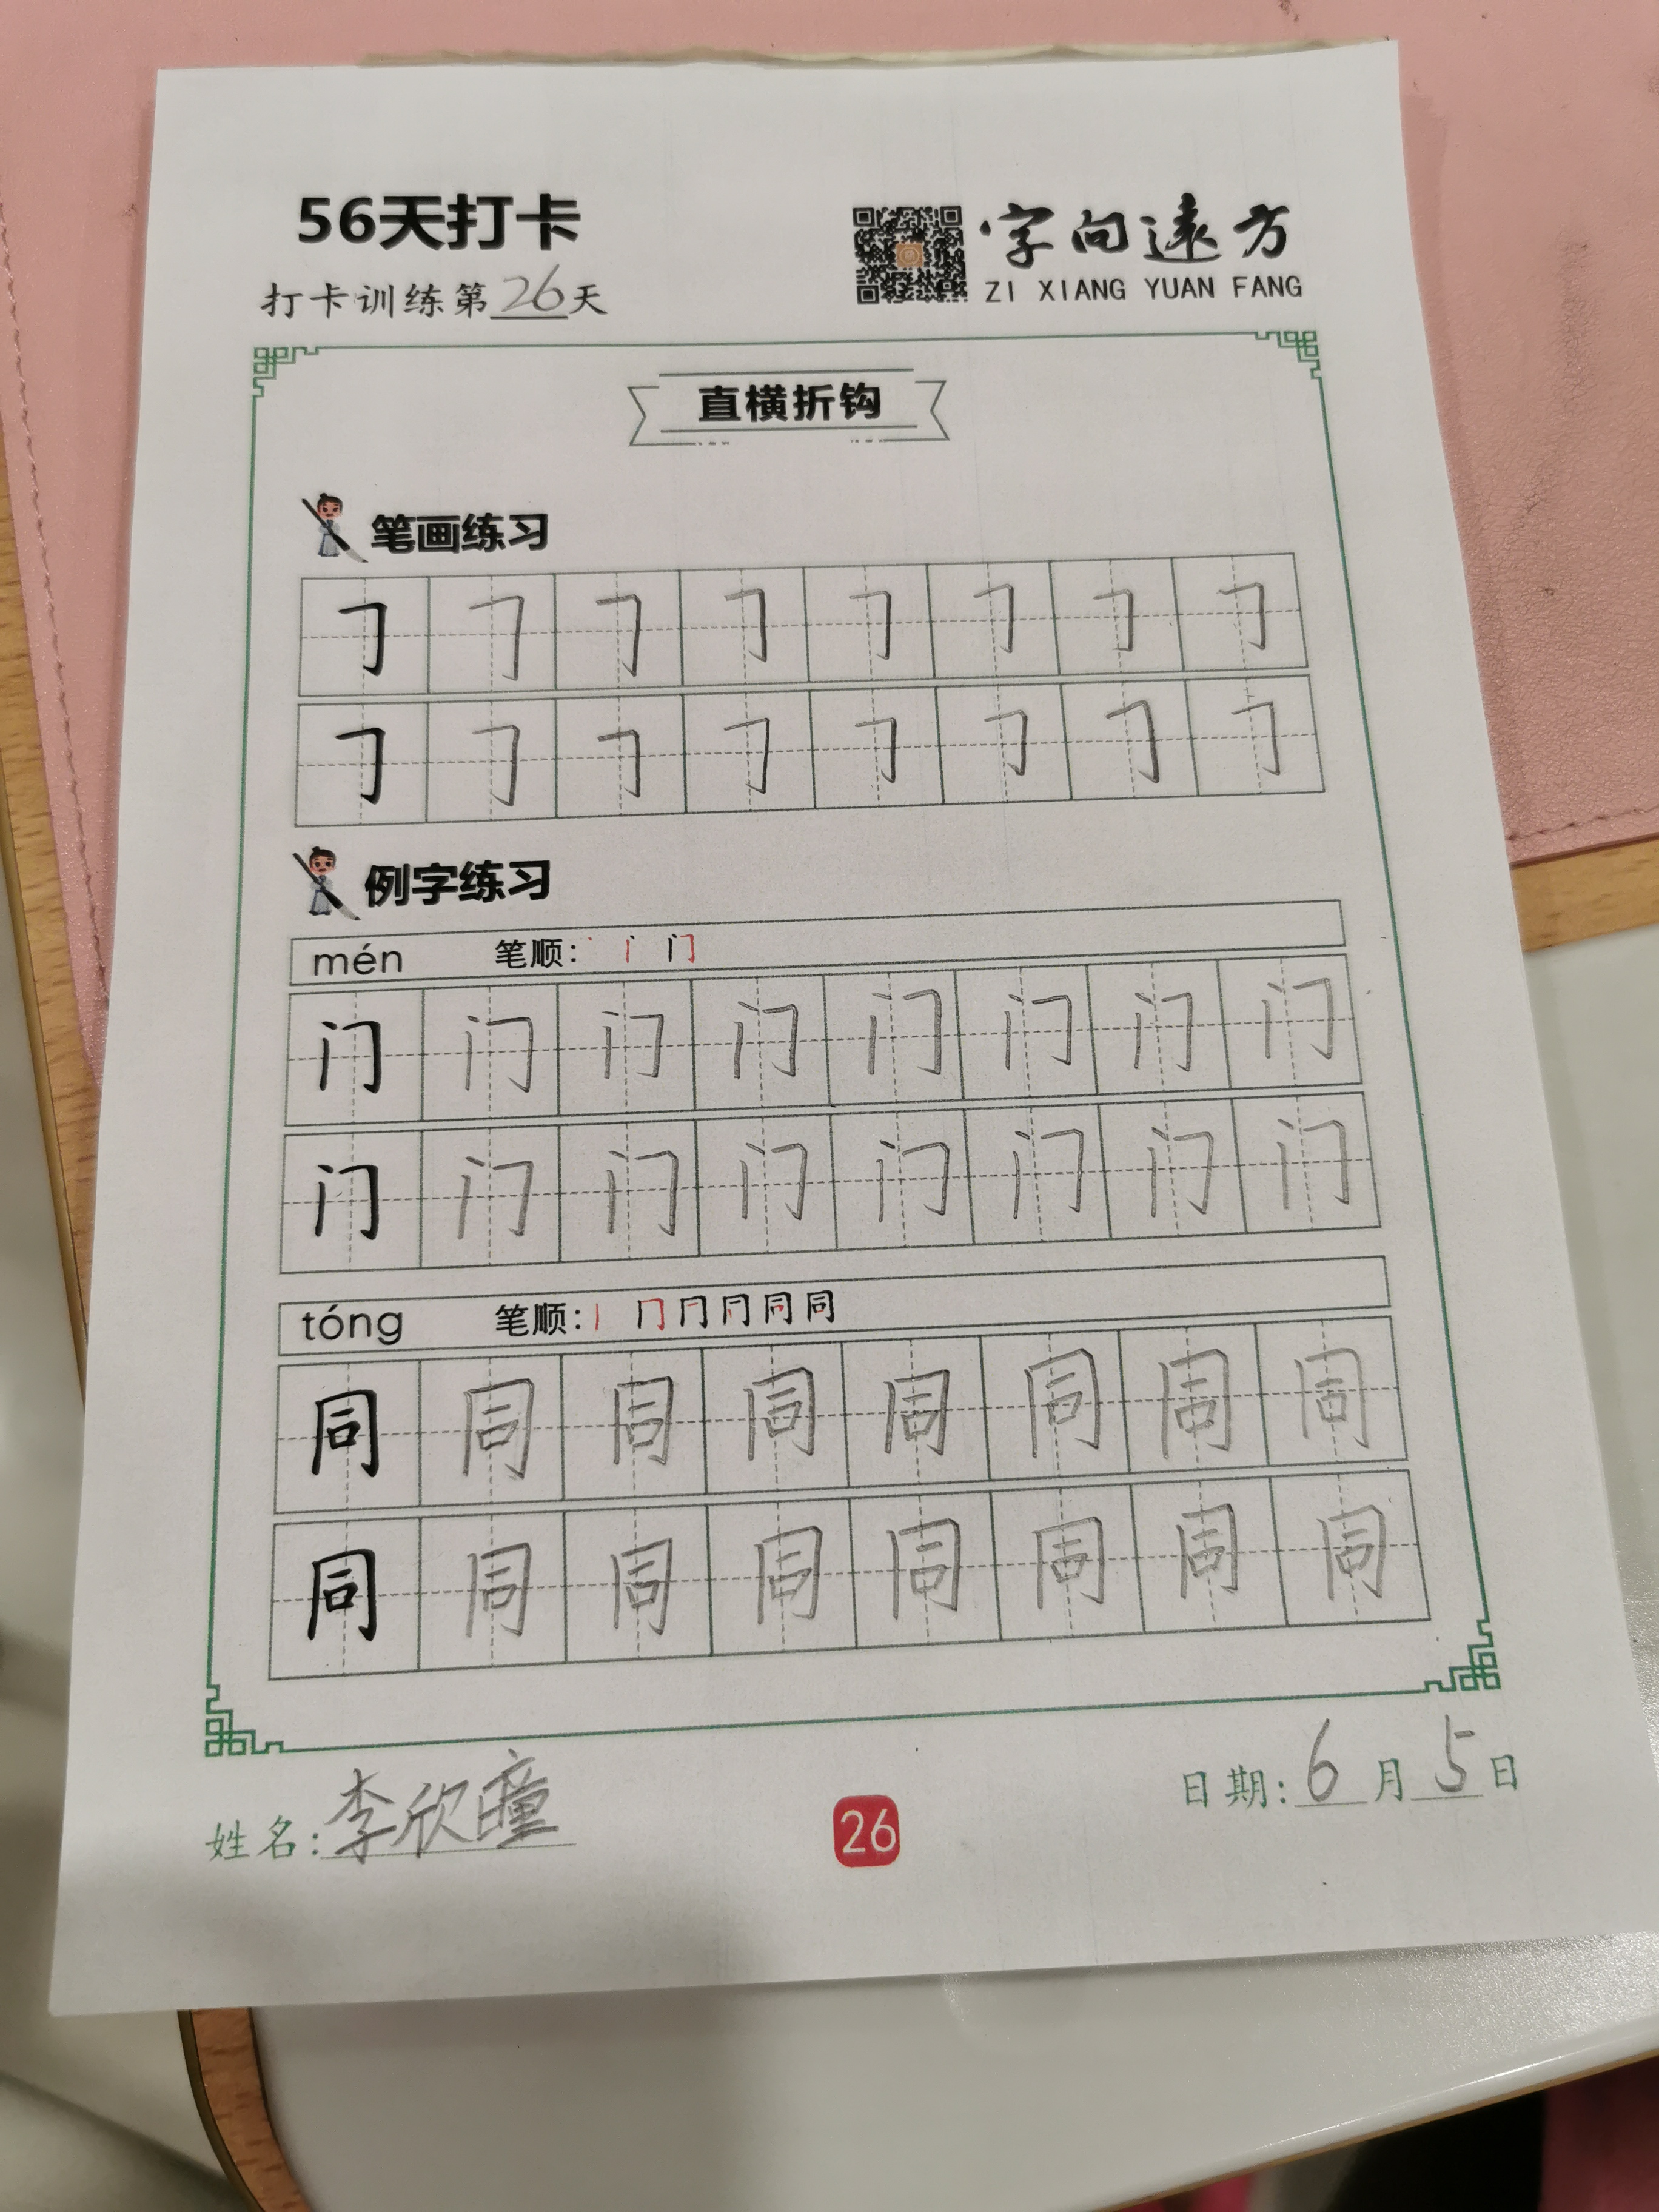 56天打卡
字向遠方
打卡训练第26天
ZI XIANG YUAN FANG
直横折钩
笔画练习
𠃌 𠃌 𠃌 𠃌 𠃌 𠃌 𠃌 𠃌
𠃌 𠃌 𠃌 𠃌 𠃌 𠃌 𠃌 𠃌
例字练习
mén 笔顺: 丶 丨 门
门 门 门 门 门 门 门 门
门 门 门 门 门 门 门 门
tóng 笔顺: 丨 冂 同 同
同 同 同 同 同 同 同 同
同 同 同 同 同 同 同 同
姓名:李欣瞳
26
日期:6月5日